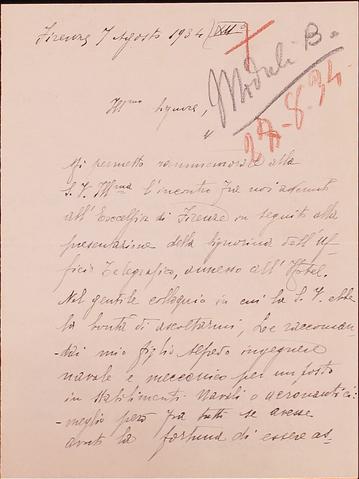 Firenze 7 Agosto 1934 (XII°)
Moduli B.
27-8-34
Ill.mo Signore,
Mi permetto rammemorare alla
S.V. Ill.ma l'incontro fra noi
all' Excelsior di Firenze in seguito alla
presentazione della signorina dell' Uf-
ficio Telegrafico, annesso all' Hotel.
Nel gentile colloquio in cui la S.V. ebbe
la bontà di ascoltarmi, Le raccoman-
dai mio figlio Alfredo ingegnere
navale e meccanico per un posto
in stabilimenti Navali o aeronautici:
meglio però fra tutti se avesse
avuto la fortuna di essere as-